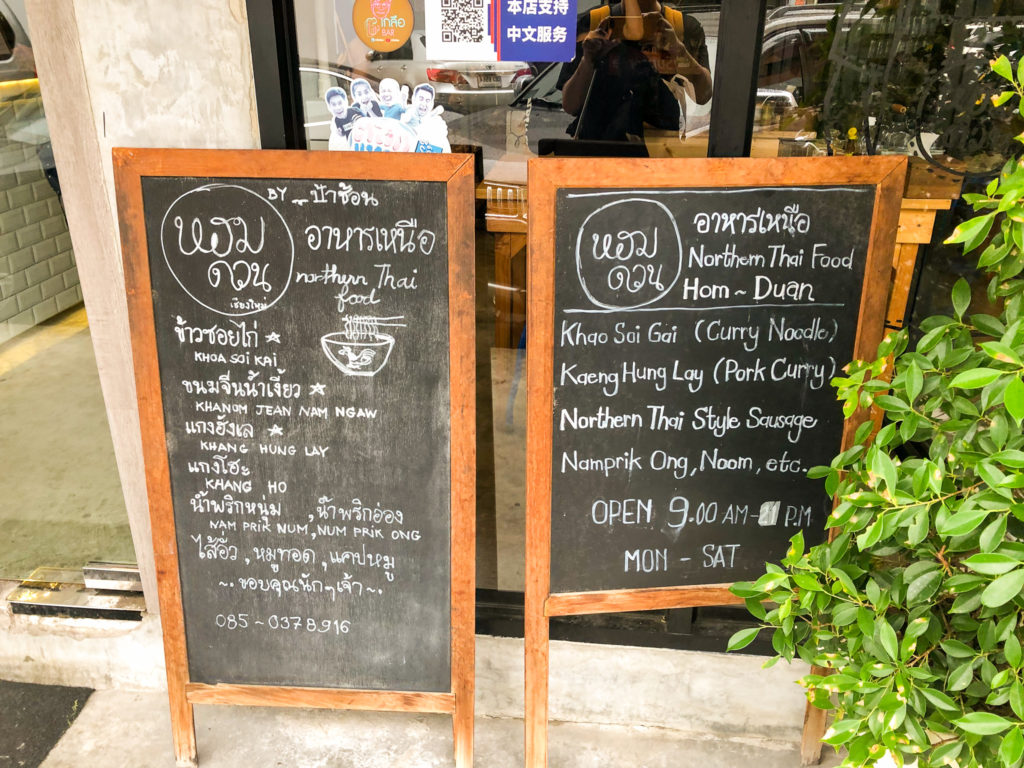 เกลือ
BAR
本店支持
中文服务
BY _ ป้าซ้อน
หอม
ดวน
เชียงใหม่
อาหารเหนือ
northern Thai
food
ข้าวซอยไก่
KHOA SOI KAI
ขนมจีนน้ำเงี้ยว
KHANOM JEAN NAM NGAW
แกงฮังเล
KHANG HUNG LAY
แกงโฮะ
KHANG HO
น้ำพริกหนุ่ม , น้ำพริกอ่อง
NAM PRIK NUM, NUM PRIK ONG
ไส้อั่ว , หมูทอด , แคปหมู
~. ขอบคุณนักๆเจ้า ~.
085-0378916
หอม
ดวน
อาหารเหนือ
Northern Thai Food
Hom ~ Duan
Khao Soi Gai (Curry Noodle)
Kaeng Hung Lay (Pork Curry)
Northern Thai Style Sausage
Namprik Ong, Noom, etc.
OPEN 9.00 AM - P.M
MON - SAT